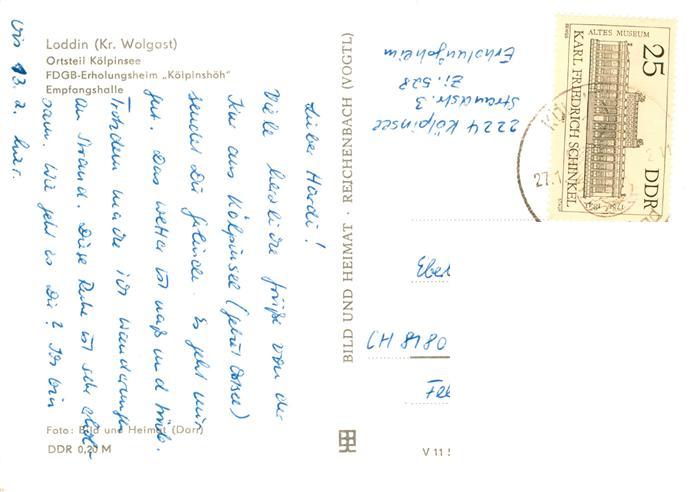 Loddin (Kr. Wolgast)
Ortsteil Kölpinsee
FDGB-Erholungsheim „Kölpinshöh"
Empfangshalle
Lieber Hardi!
Viele herzliche Grüße von der
Kur aus Kölpinsee (jetzt Ostsee)
sendet Dir Gelinde. Es geht mir
gut. Das Wetter ist naß und trüb.
Trotzdem mache ich Wanderungen
am Strand. Diese Ruhe ist sehr
sam. Wie geht es Dir? Ich bin
bis 13.2. hier.
Foto: Bild und Heimat (Darr)
DDR 0,20 M
BILD UND HEIMAT · REICHENBACH (VOGTL)
Erholungsheim
Zi. 528
Strandstr. 3
2224 Kölpinsee
ALTES MUSEUM
25
KARL FRIEDRICH SCHINKEL
DDR
27.1
CH 8180
V 11